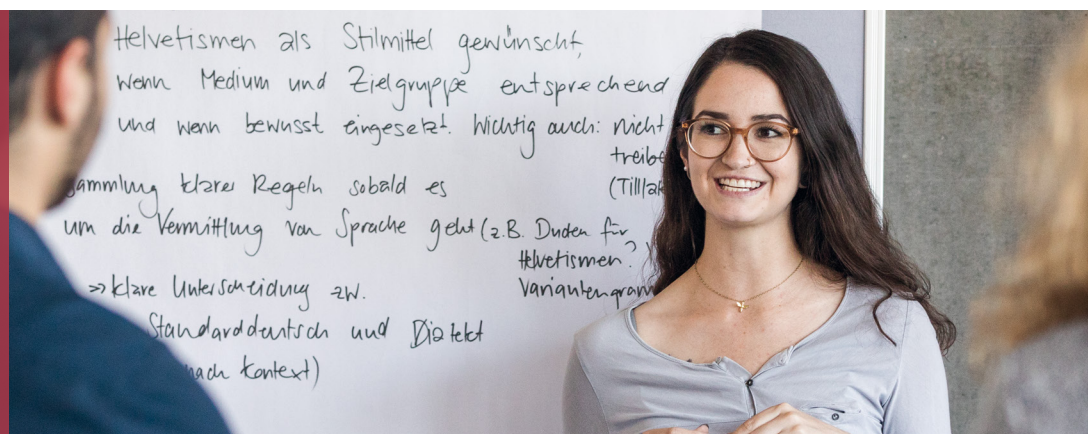 Helvetismen als Stilmittel gewünscht,
wenn Medium und Zielgruppe entsprechend
und wenn bewusst eingesetzt. Wichtig auch: nicht
treibe
(Till
Sammlung klarer Regeln sobald es
um die Vermittlung von Sprache geht (z.B. Duden für
Helvetismen?
Variantengram
=> klare Unterscheidung zw.
Standarddeutsch und Dialekt
nach Kontext)